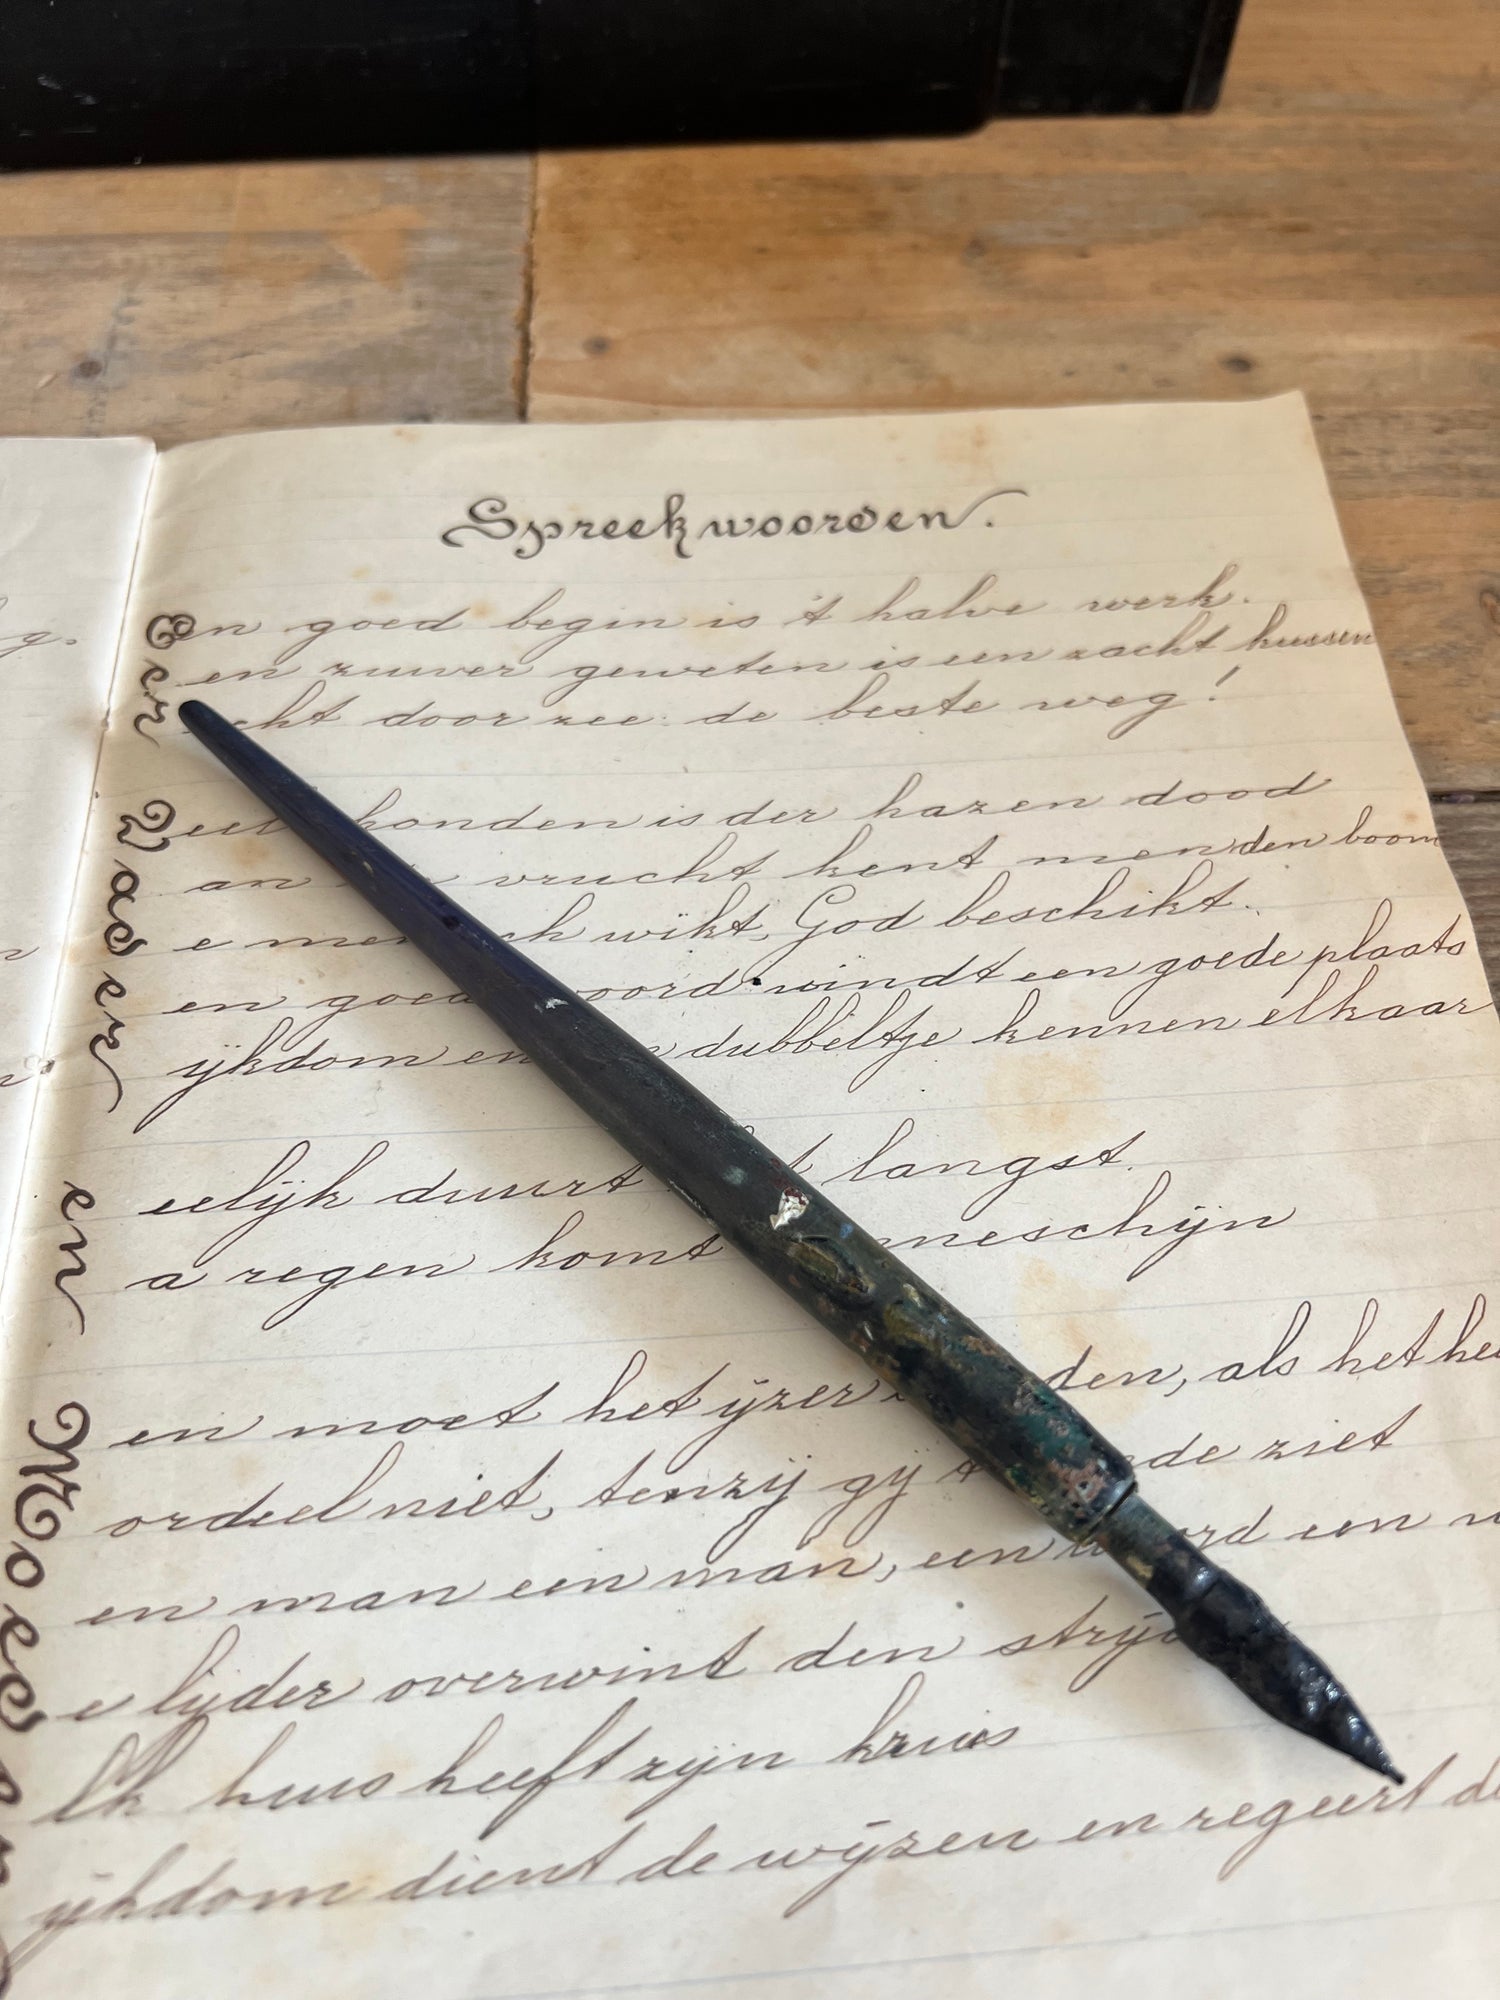 Spreekwoorden.
Een goed begin is 't halve werk.
Een zuiver geweten is een zacht kussen
Recht door zee de beste weg!
Veel honden is der hazen dood
Van vrucht kent men den boom
De wikt, God beschikt.
Een goed woord vindt een goede plaats
Rijkdom en dubbeltje kennen elkaar
Eerlijk duurt langst.
Na regen komt
Men moet het ijzer als het
Oordeel niet, tenzij gij ziet
Een man een man, een woord een
De lijder overwint den strijd
Elk huis heeft zijn kruis
Rijkdom dient de wijzen en regeert de